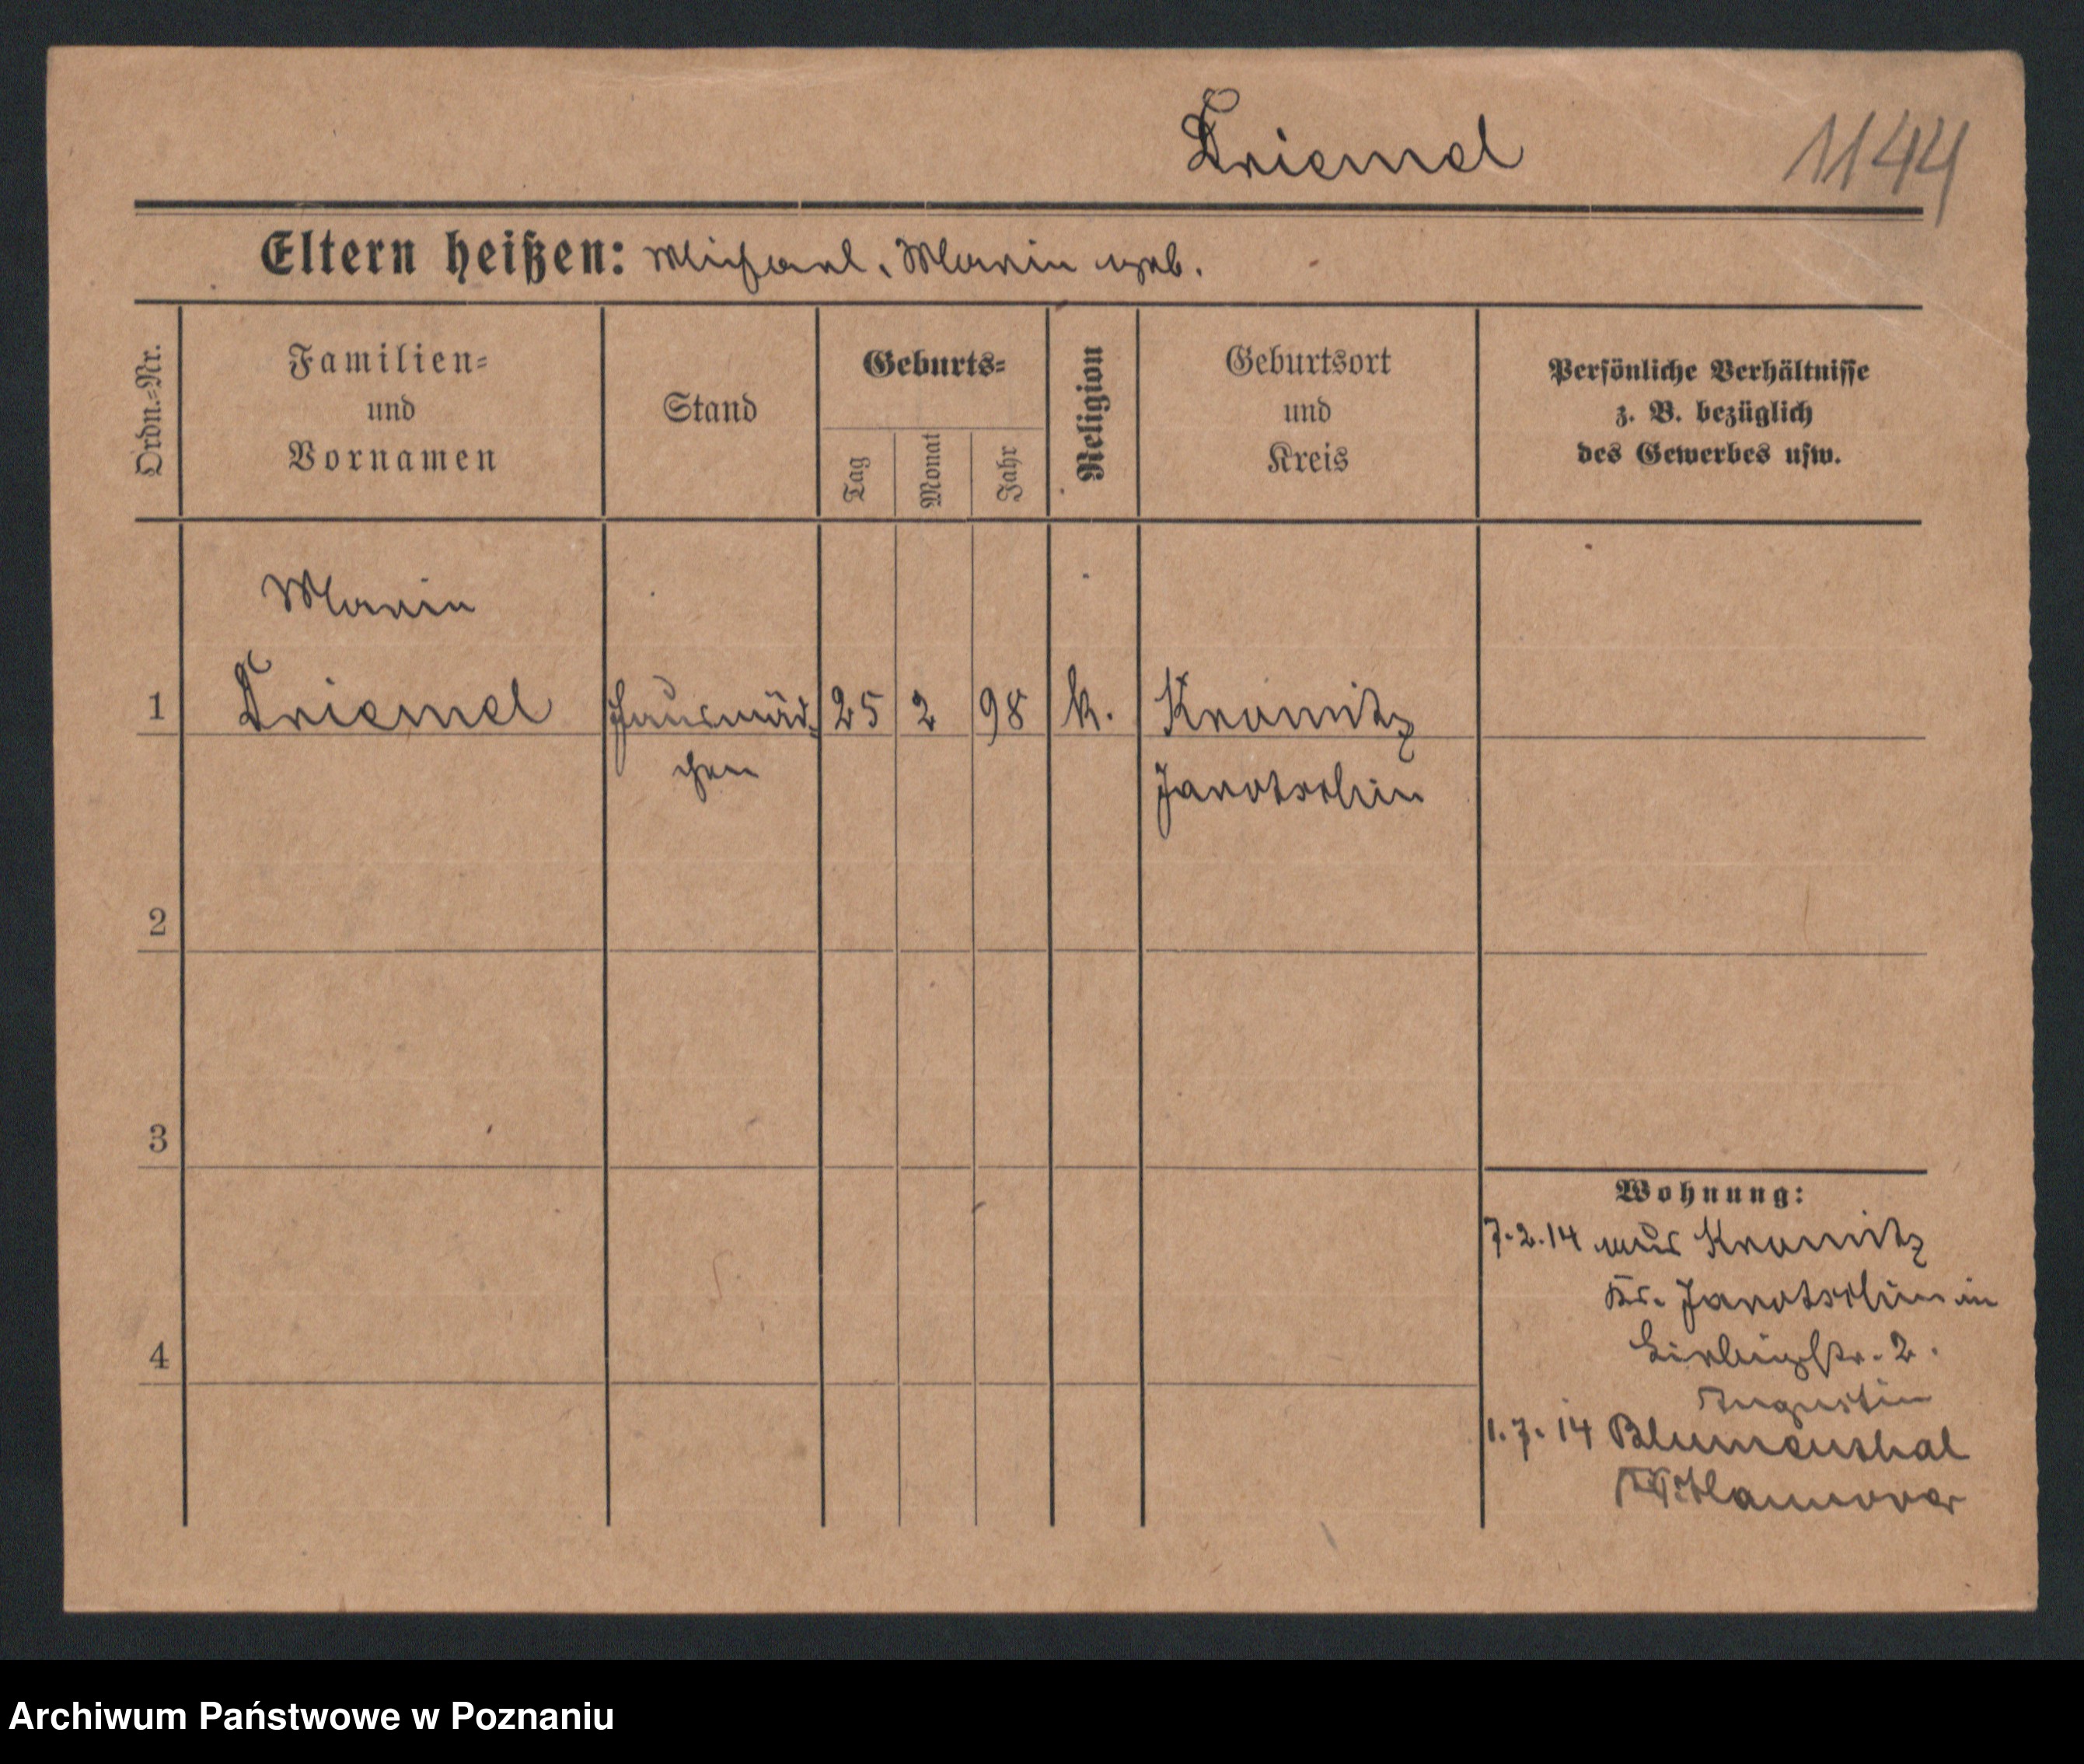 Kriemel
1144
Eltern heißen: Michael, Maria geb.
Ordn.=Nr.
Familien=
und
Vornamen
Stand
Geburts=
Tag
Monat
Jahr
Religion
Geburtsort
und
Kreis
Persönliche Verhältnisse
z. B. bezüglich
des Gewerbes usw.
Maria
1 Kriemel Hausmäd= 25 2 98 k. Kromitz
chen Jarotschin
2
3
4
Wohnung:
7.2.14 aus Kromitz
Kr. Jarotschin in
2.
Augustin
1.7.14 Blumenthal
Hannover
Archiwum Państwowe w Poznaniu